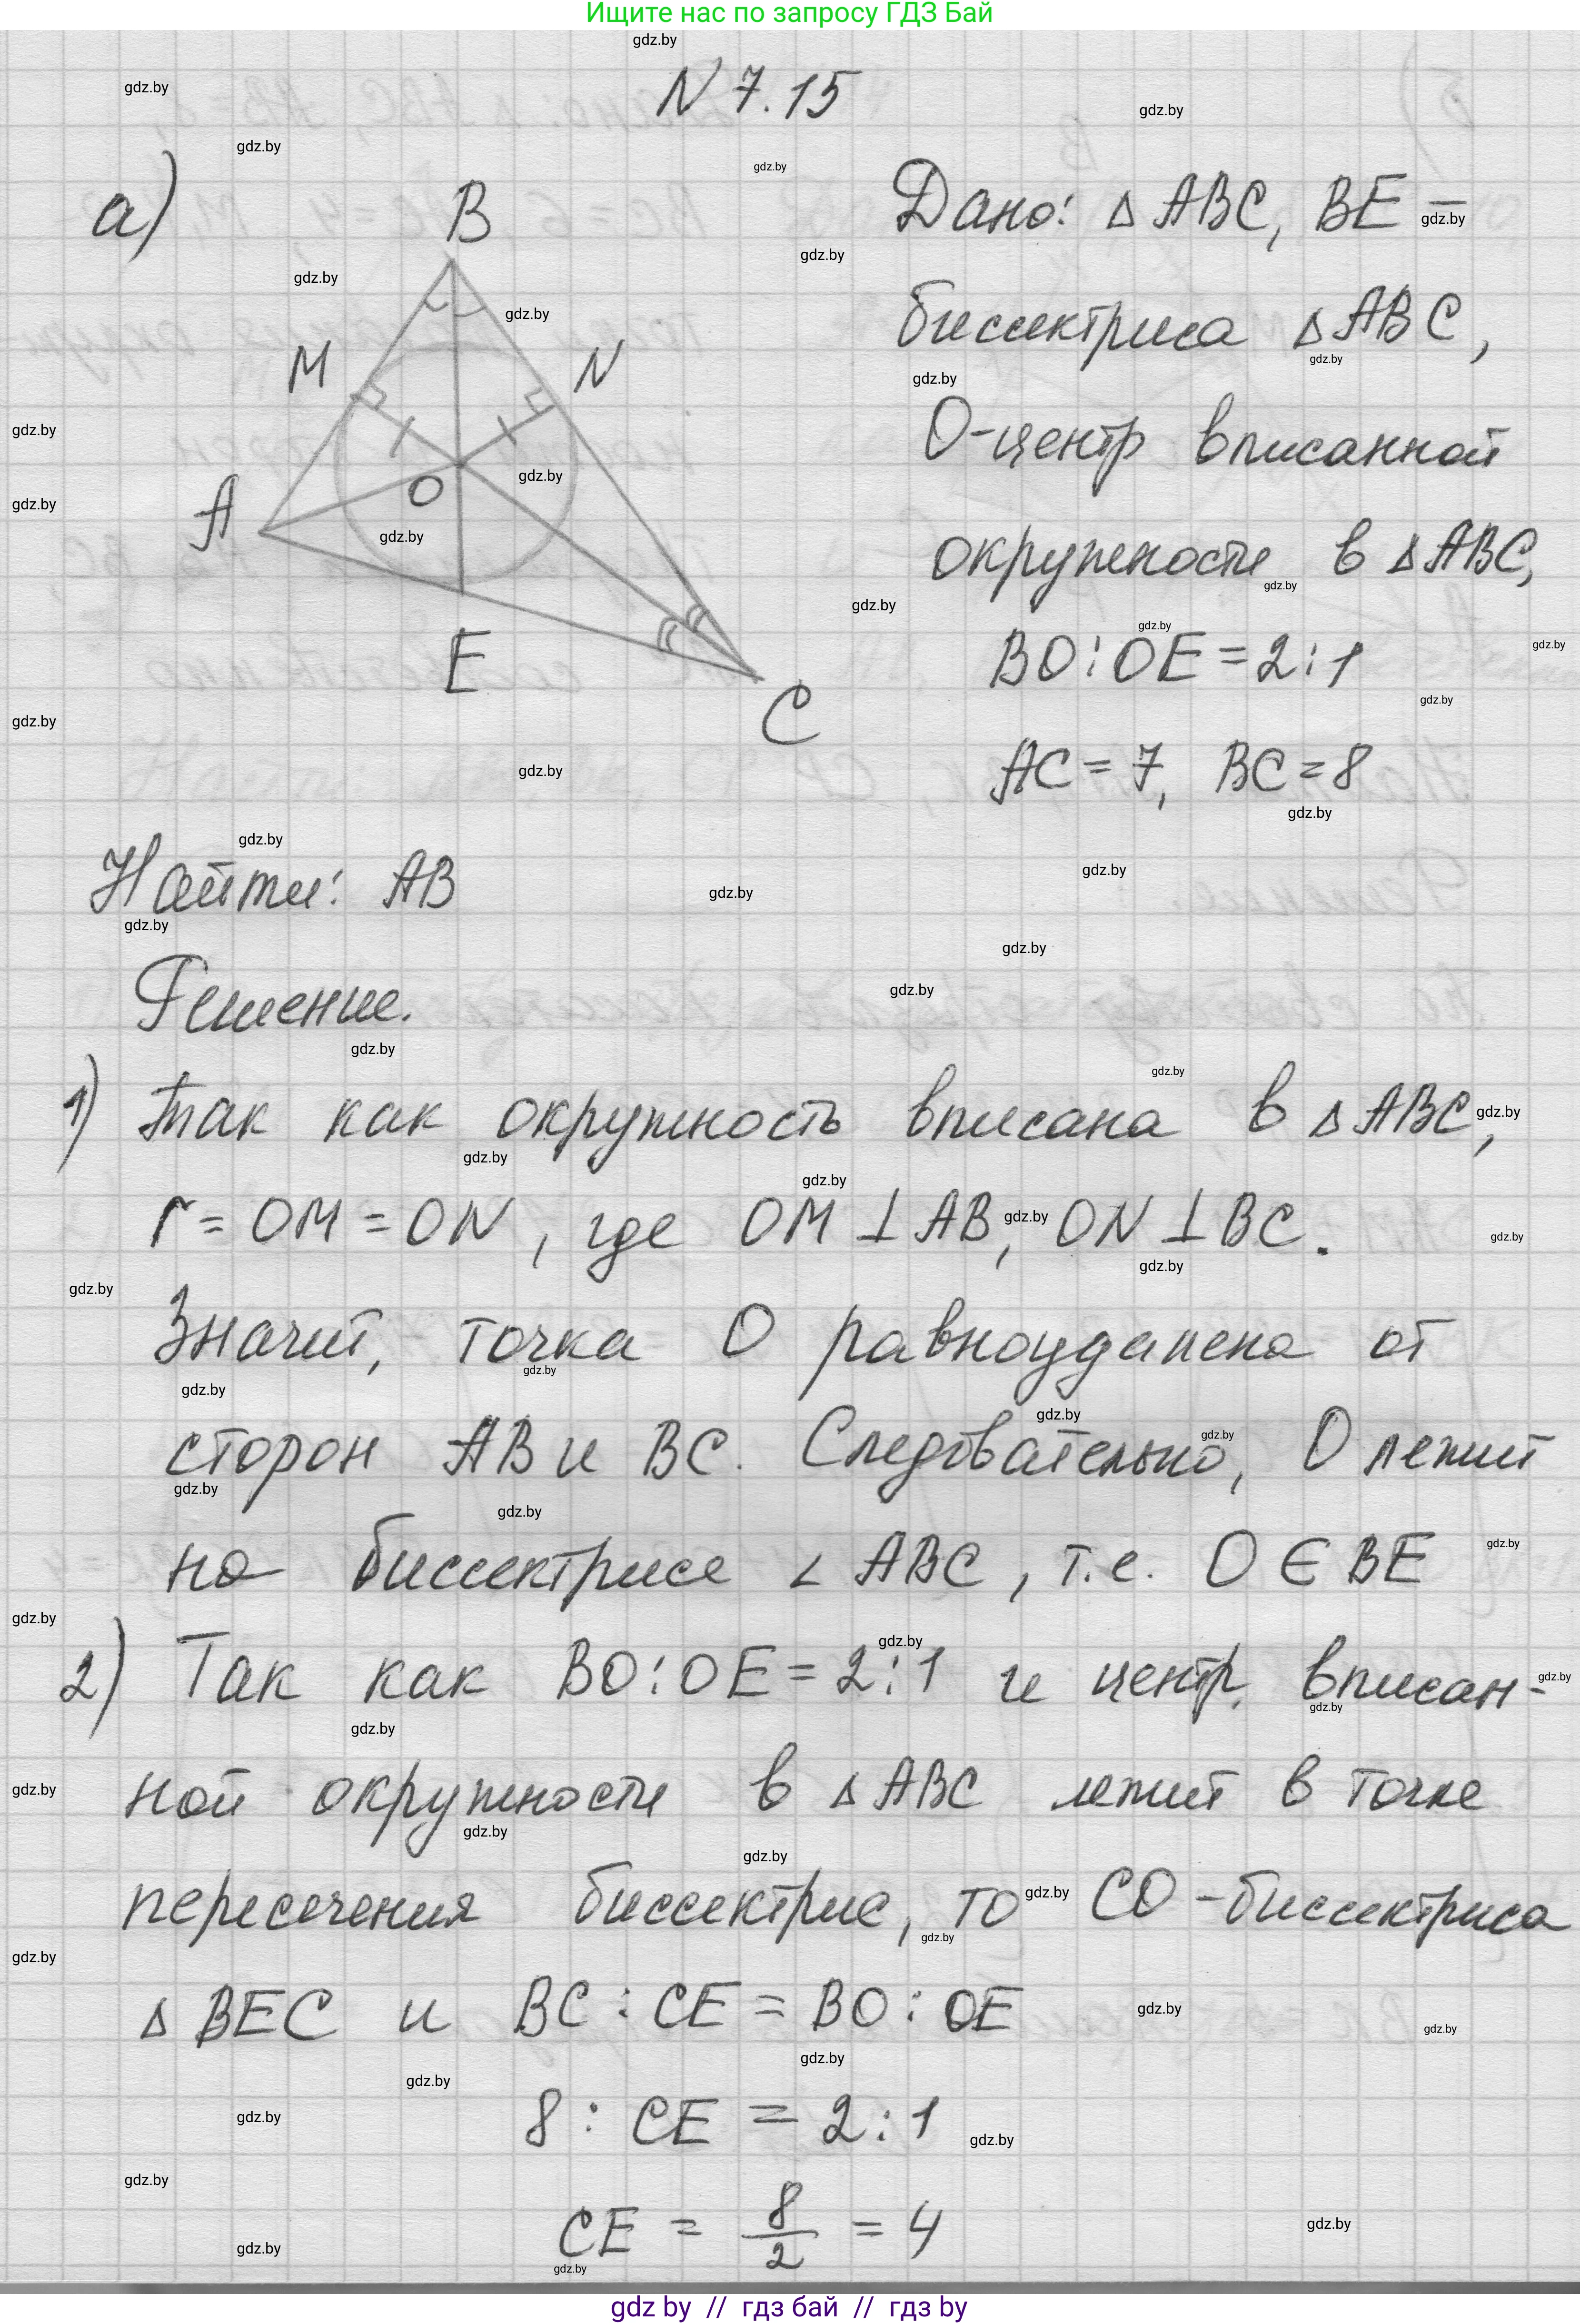 Ищите нас по запросу ГДЗ Бай
N 7.15
а)
B
M
N
A
O
E
C
Дано: Δ ABC, BE –
биссектриса Δ ABC,
O-центр вписанной
окружности в Δ ABC,
BO : OE = 2 : 1
AC = 7, BC = 8
Найти: AB
Решение.
1) Так как окружность вписана в Δ ABC,
r = OM = ON, где OM ⊥ AB, ON ⊥ BC.
Значит, точка O равноудалена от
сторон AB и BC. Следовательно, O лежит
на биссектрисе ∠ ABC, т.е. O ∈ BE
2) Так как BO : OE = 2 : 1 и центр вписан-
ной окружности в Δ ABC лежит в точке
пересечения биссектрис, то CO - биссектриса
Δ BEC и BC : CE = BO : OE
8 : CE = 2 : 1
CE = 8/2 = 4
gdz by // гдз бай // гдз by